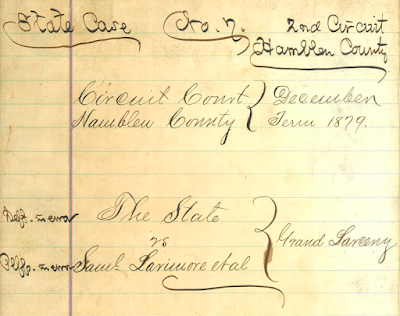 State Case No. 7. 2nd Circuit
Hamblen County
Circuit Court December
Hamblen County Term 1879.
Deft. in error The State
vs Grand Larceny
Plff. in error Saml. Larimore et al